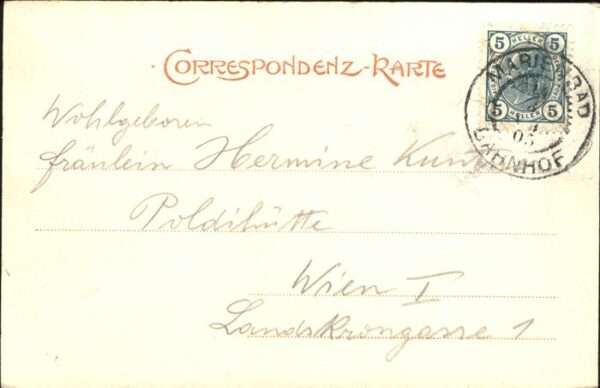 CORRESPONDENZ-KARTE
5 HELLER 5
5 HELLER 5
MARIENBAD
BAHNHOF
Wohlgeboren
fräulein Hermine
Poldihütte
Wien I
Landskrongasse 1